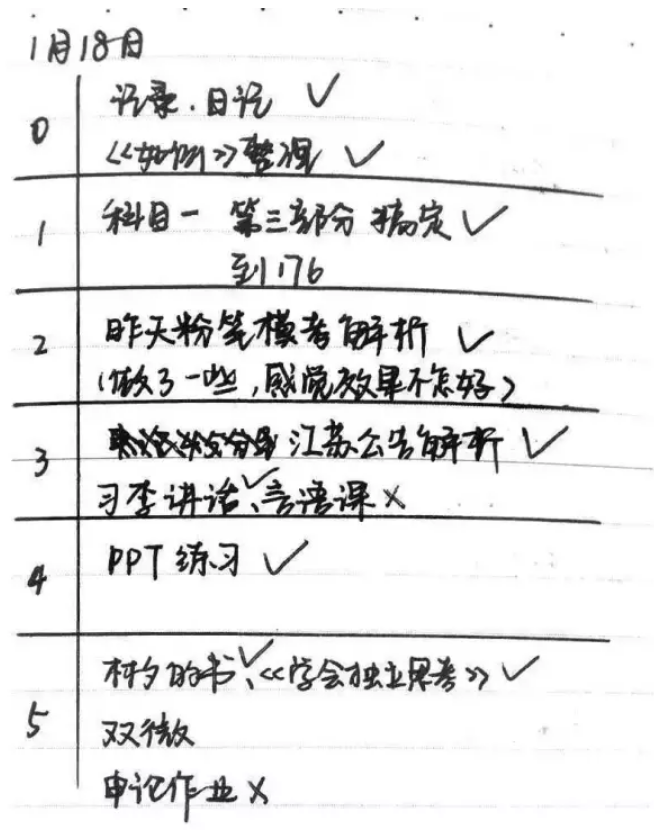 1月18日
0
记录.日记 ✓
《如例》整理 ✓
1
科目一 第三部分 搞定 ✓
到176
2
昨天粉笔模考解析 ✓
(做了一些,感觉效果不怎好)
3
江苏公告解析 ✓
习李讲话✓、言语课 ×
4
PPT 练习 ✓
5
的书✓、《学会独立思考》✓
双微
申论作业 ×